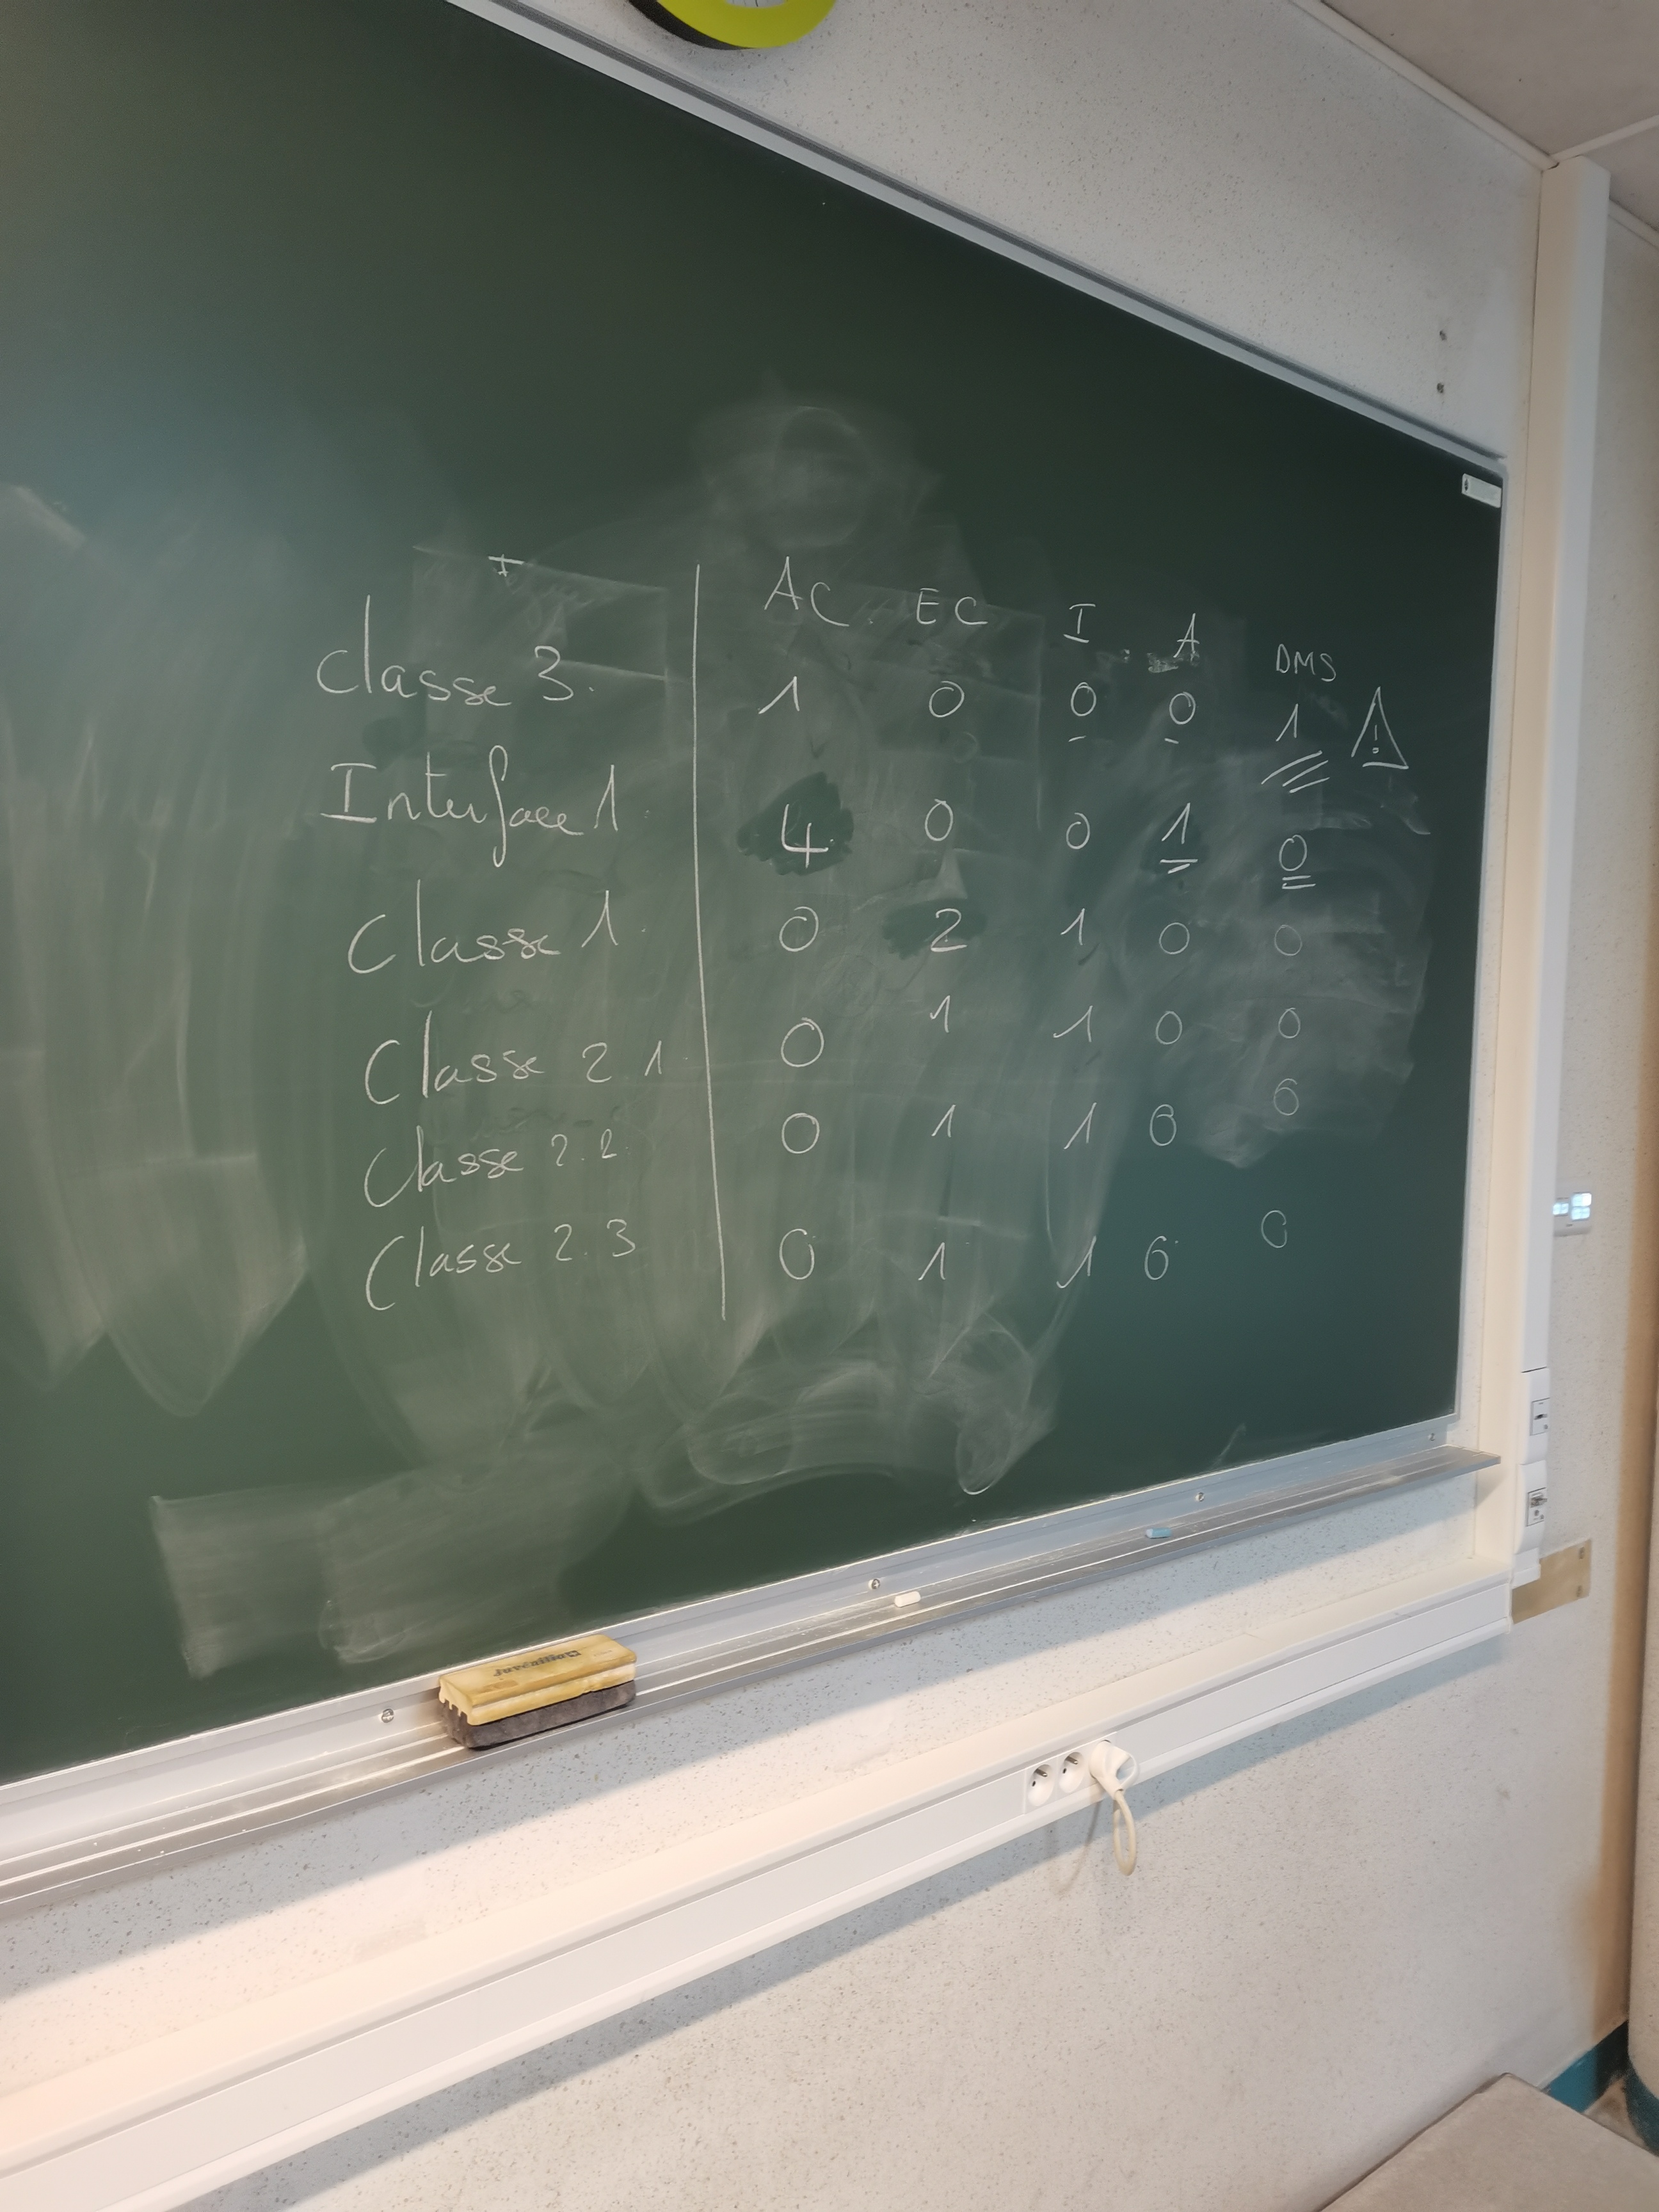 AC EC I A DMS
Classe 3. 1 0 0 0 1 !
Interface 1. 4 0 0 1 0
Classe 1. 0 2 1 0 0
Classe 2 1 0 1 1 0 0
Classe 2.2 0 1 1 0 0
Classe 2.3 0 1 1 0 0